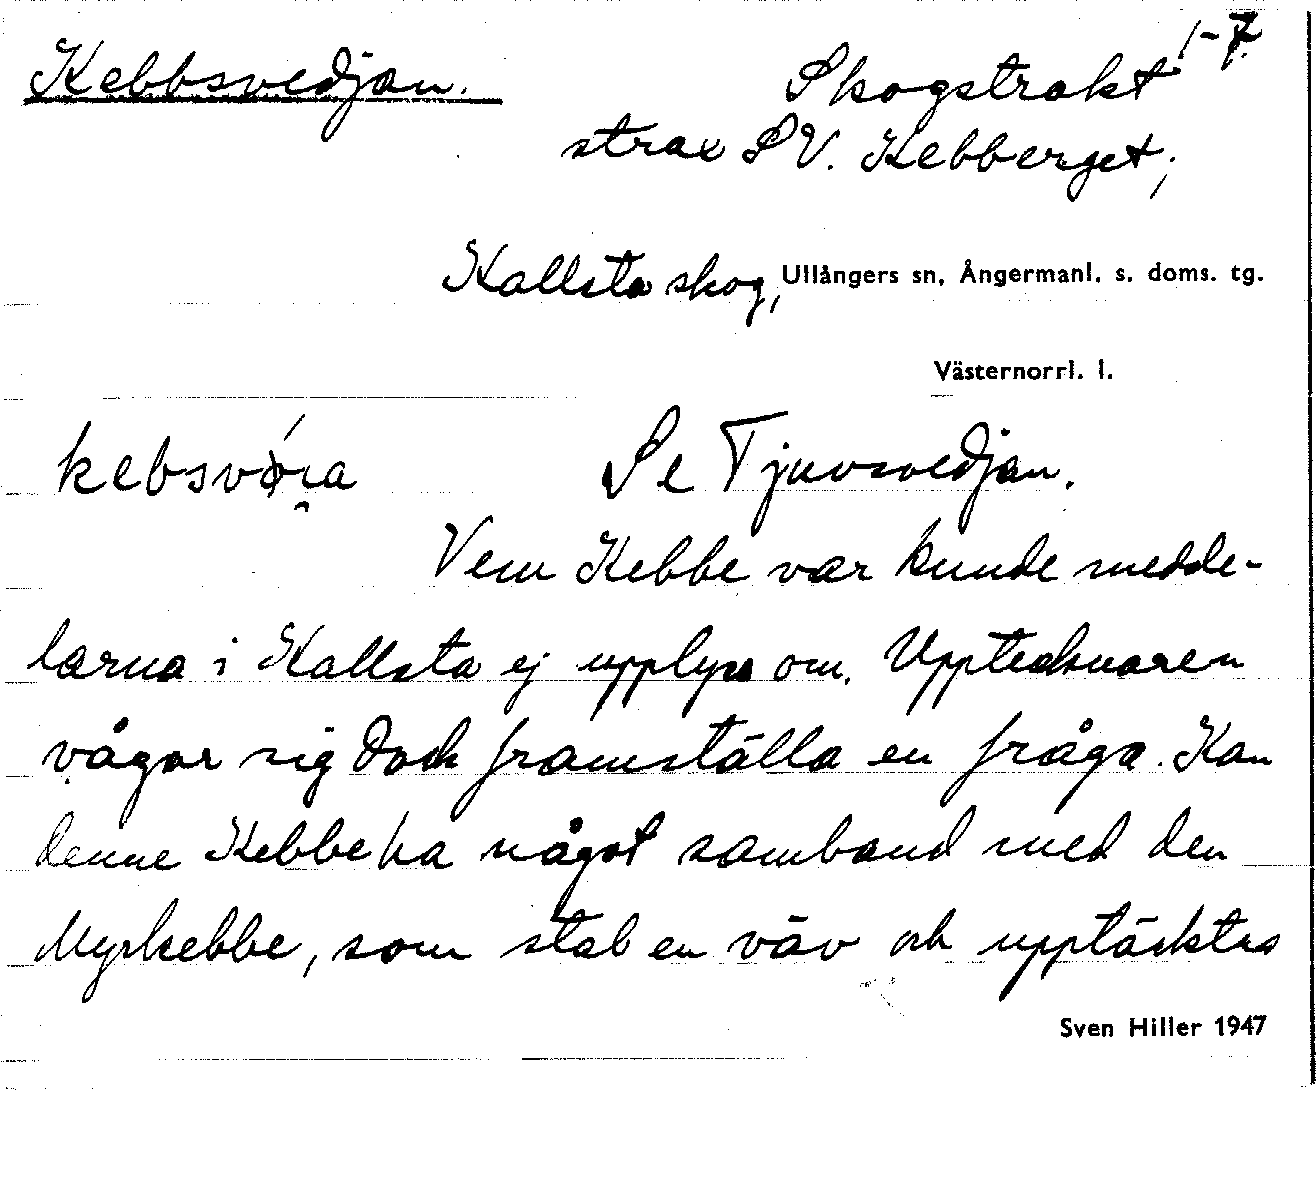 1-7
Kebbsvedjan. Skogstrakt
strax SV. Kebberget;
Kallsta skog, Ullångers sn, Ångermanl. s. doms. tg.
Västernorrl. l.
Se Tjuvsvedjan.
Vem Kebbe var kunde medde-
larna i Kallsta ej upplysa om. Upptecknaren
vågar sig dock framställa en fråga. Kan
denne Kebbe ha något samband med den
Myrkebbe, som stal en väv och upptäcktes
Sven Hiller 1947